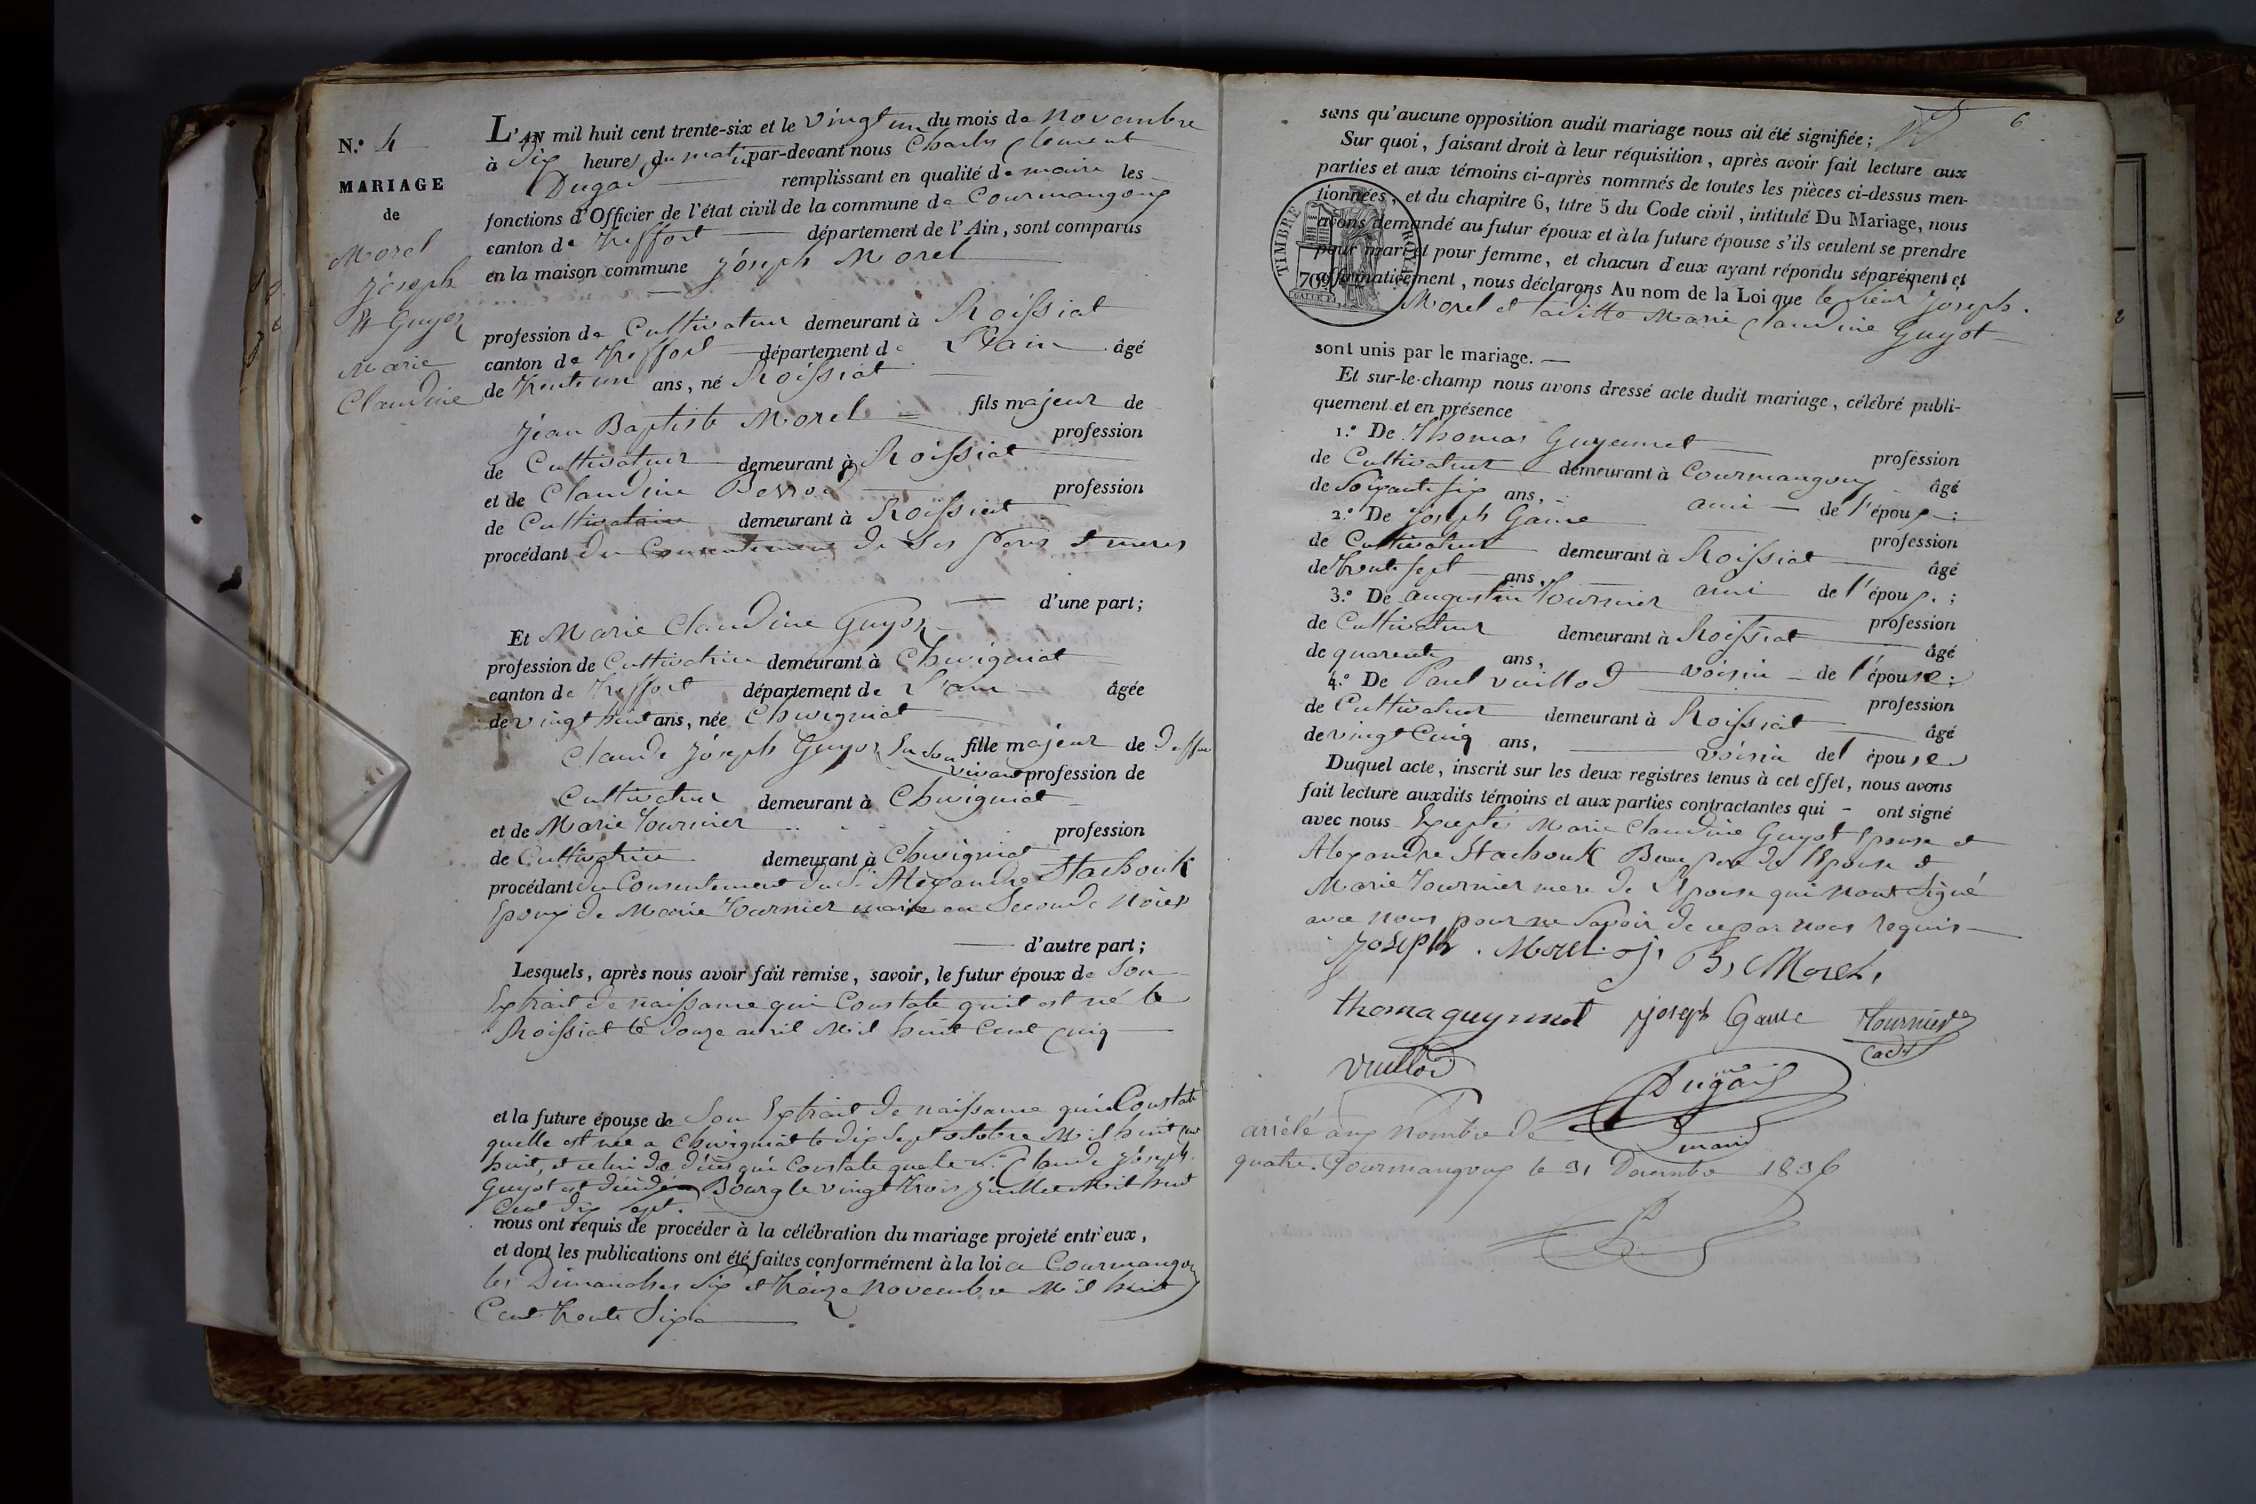 N.º 4
MARIAGE
de
Morel
Joseph
et Guyot
Marie
Claudine
L'AN mil huit cent trente-six et le vingt un du mois de Novembre
à dix heures du matin par-devant nous Charles Clement
Dugad remplissant en qualité de maire les
fonctions d'Officier de l'état civil de la commune de Courmangoux
canton de Treffort département de l'Ain, sont comparus
en la maison commune Joseph Morel
profession de Cultivateur demeurant à Roissiat
canton de Treffort département de L'ain âgé
de trente un ans, né Roissiat
fils majeur de
Jean Baptiste Morel profession
de Cultivateur demeurant à Roissiat
et de Claudine profession
de Cultivatrice demeurant à Roissiat
procédant du Consentement de Ses peres et meres
d'une part;
Et Marie Claudine Guyot
profession de Cultivatrice demeurant à Chevigniat
canton de Treffort département de L'ain âgée
de vingt huit ans, née Chevigniat
fille majeur de deffun
Claude Joseph Guyot En Son vivant profession de
Cultivateur demeurant à Chevigniat
et de Marie Tournier profession
de Cultivatrice demeurant à Chevigniat
procédant du Consentement du Sr. Alexandre Stachouk
Epoux de Marie Tournier mariée en Seconde Noces
d'autre part;
Lesquels, après nous avoir fait remise, savoir, le futur époux de Son
Extrait de naissance qui Constate qu'il est né le
Roissiat le douze avril Mil huit Cent Cinq
et la future épouse de Son Extrait de naissance qui Constate
quelle est née a Chevigniat le dix Sept octobre Mil huit Cent
huit, et celui de décès qui Constate que le Sr. Claude Joseph
Guyot est décédé a Bourg le vingt trois Juillet Mil huit
Cent dix Sept.
nous ont requis de procéder à la célébration du mariage projeté entr'eux,
et dont les publications ont été faites conformément à la loi a Courmangoux
les Dimanches Six et treize Novembre Mil huit
Cent trente Six
6
sans qu'aucune opposition audit mariage nous ait été signifiée;
Sur quoi, faisant droit à leur réquisition, après avoir fait lecture aux
parties et aux témoins ci-après nommés de toutes les pièces ci-dessus men-
tionnées, et du chapitre 6, titre 5 du Code civil, intitulé Du Mariage, nous
avons demandé au futur époux et à la future épouse s'ils veulent se prendre
pour mari et pour femme, et chacun d'eux ayant répondu séparément et
affirmativement, nous déclarons Au nom de la Loi que le Sieur Joseph
TIMBRE ROYAL
Morel et laditte Marie Claudine Guyot
sont unis par le mariage.
Et sur-le-champ nous avons dressé acte dudit mariage, célébré publi-
quement et en présence
1.º De Thomas Guyennet profession
de Cultivateur demeurant à Courmangoux âgé
de Soixante Six ans, ami de l'époux;
2.º De Joseph Gaine profession
de Cultivateur demeurant à Roissiat âgé
de trente Sept ans, ami de l'époux;
3.º De augustin Tournier profession
de Cultivateur demeurant à Roissiat âgé
de quarente ans, voisin de l'épouse;
4.º De Paul Vuillod profession
de Cultivateur demeurant à Roissiat âgé
de vingt Cinq ans, voisin de l'épouse
Duquel acte, inscrit sur les deux registres tenus à cet effet, nous avons
fait lecture auxdits témoins et aux parties contractantes qui ont signé
avec nous Excepté Marie Claudine Guyot Epouse et
Alexandre Stachouk Beau pere de l'Epouse et
Marie Tournier mere de L'Epouse qui n'ont Signé
avec nous pour ne Savoir de ce par nous requis
Joseph. Morel. B, Morel,
thoma guyennet Joseph Gaine Tournier
Cadet
Vuillod
Dugad
maire
arrêté aux Nombre de
quatre. Courmangoux le 31 Decembre 1836